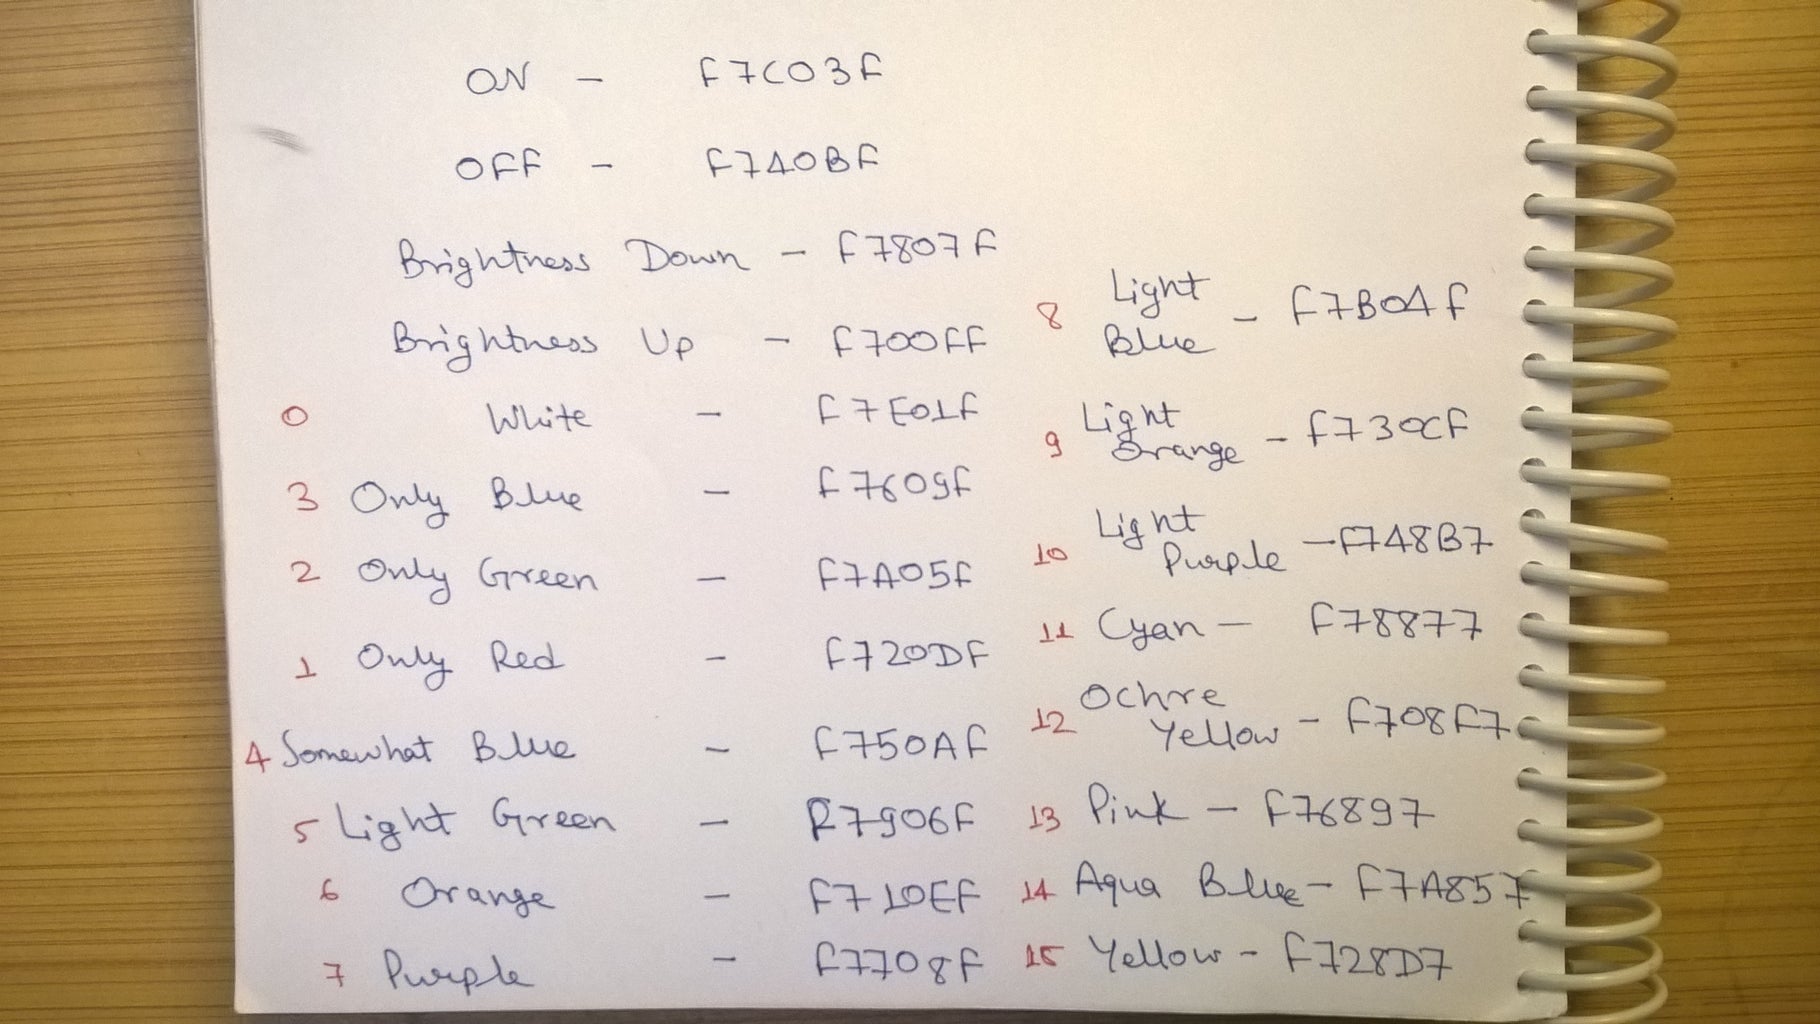 ON - F7C03F
OFF - F740BF
Brightness Down - F7807F
Brightness Up - F700FF
0 White - F7E01F
3 Only Blue - F7609F
2 Only Green - F7A05F
1 Only Red - F720DF
4 Somewhat Blue - F750AF
5 Light Green - F7906F
6 Orange - F710EF
7 Purple - F7708F
8 Light
Blue - F7B04F
9 Light
Orange - F730CF
10 Light
Purple - F748B7
11 Cyan - F78877
12 Ochre
Yellow - F708F7
13 Pink - F76897
14 Aqua Blue - F7A857
15 Yellow - F728D7